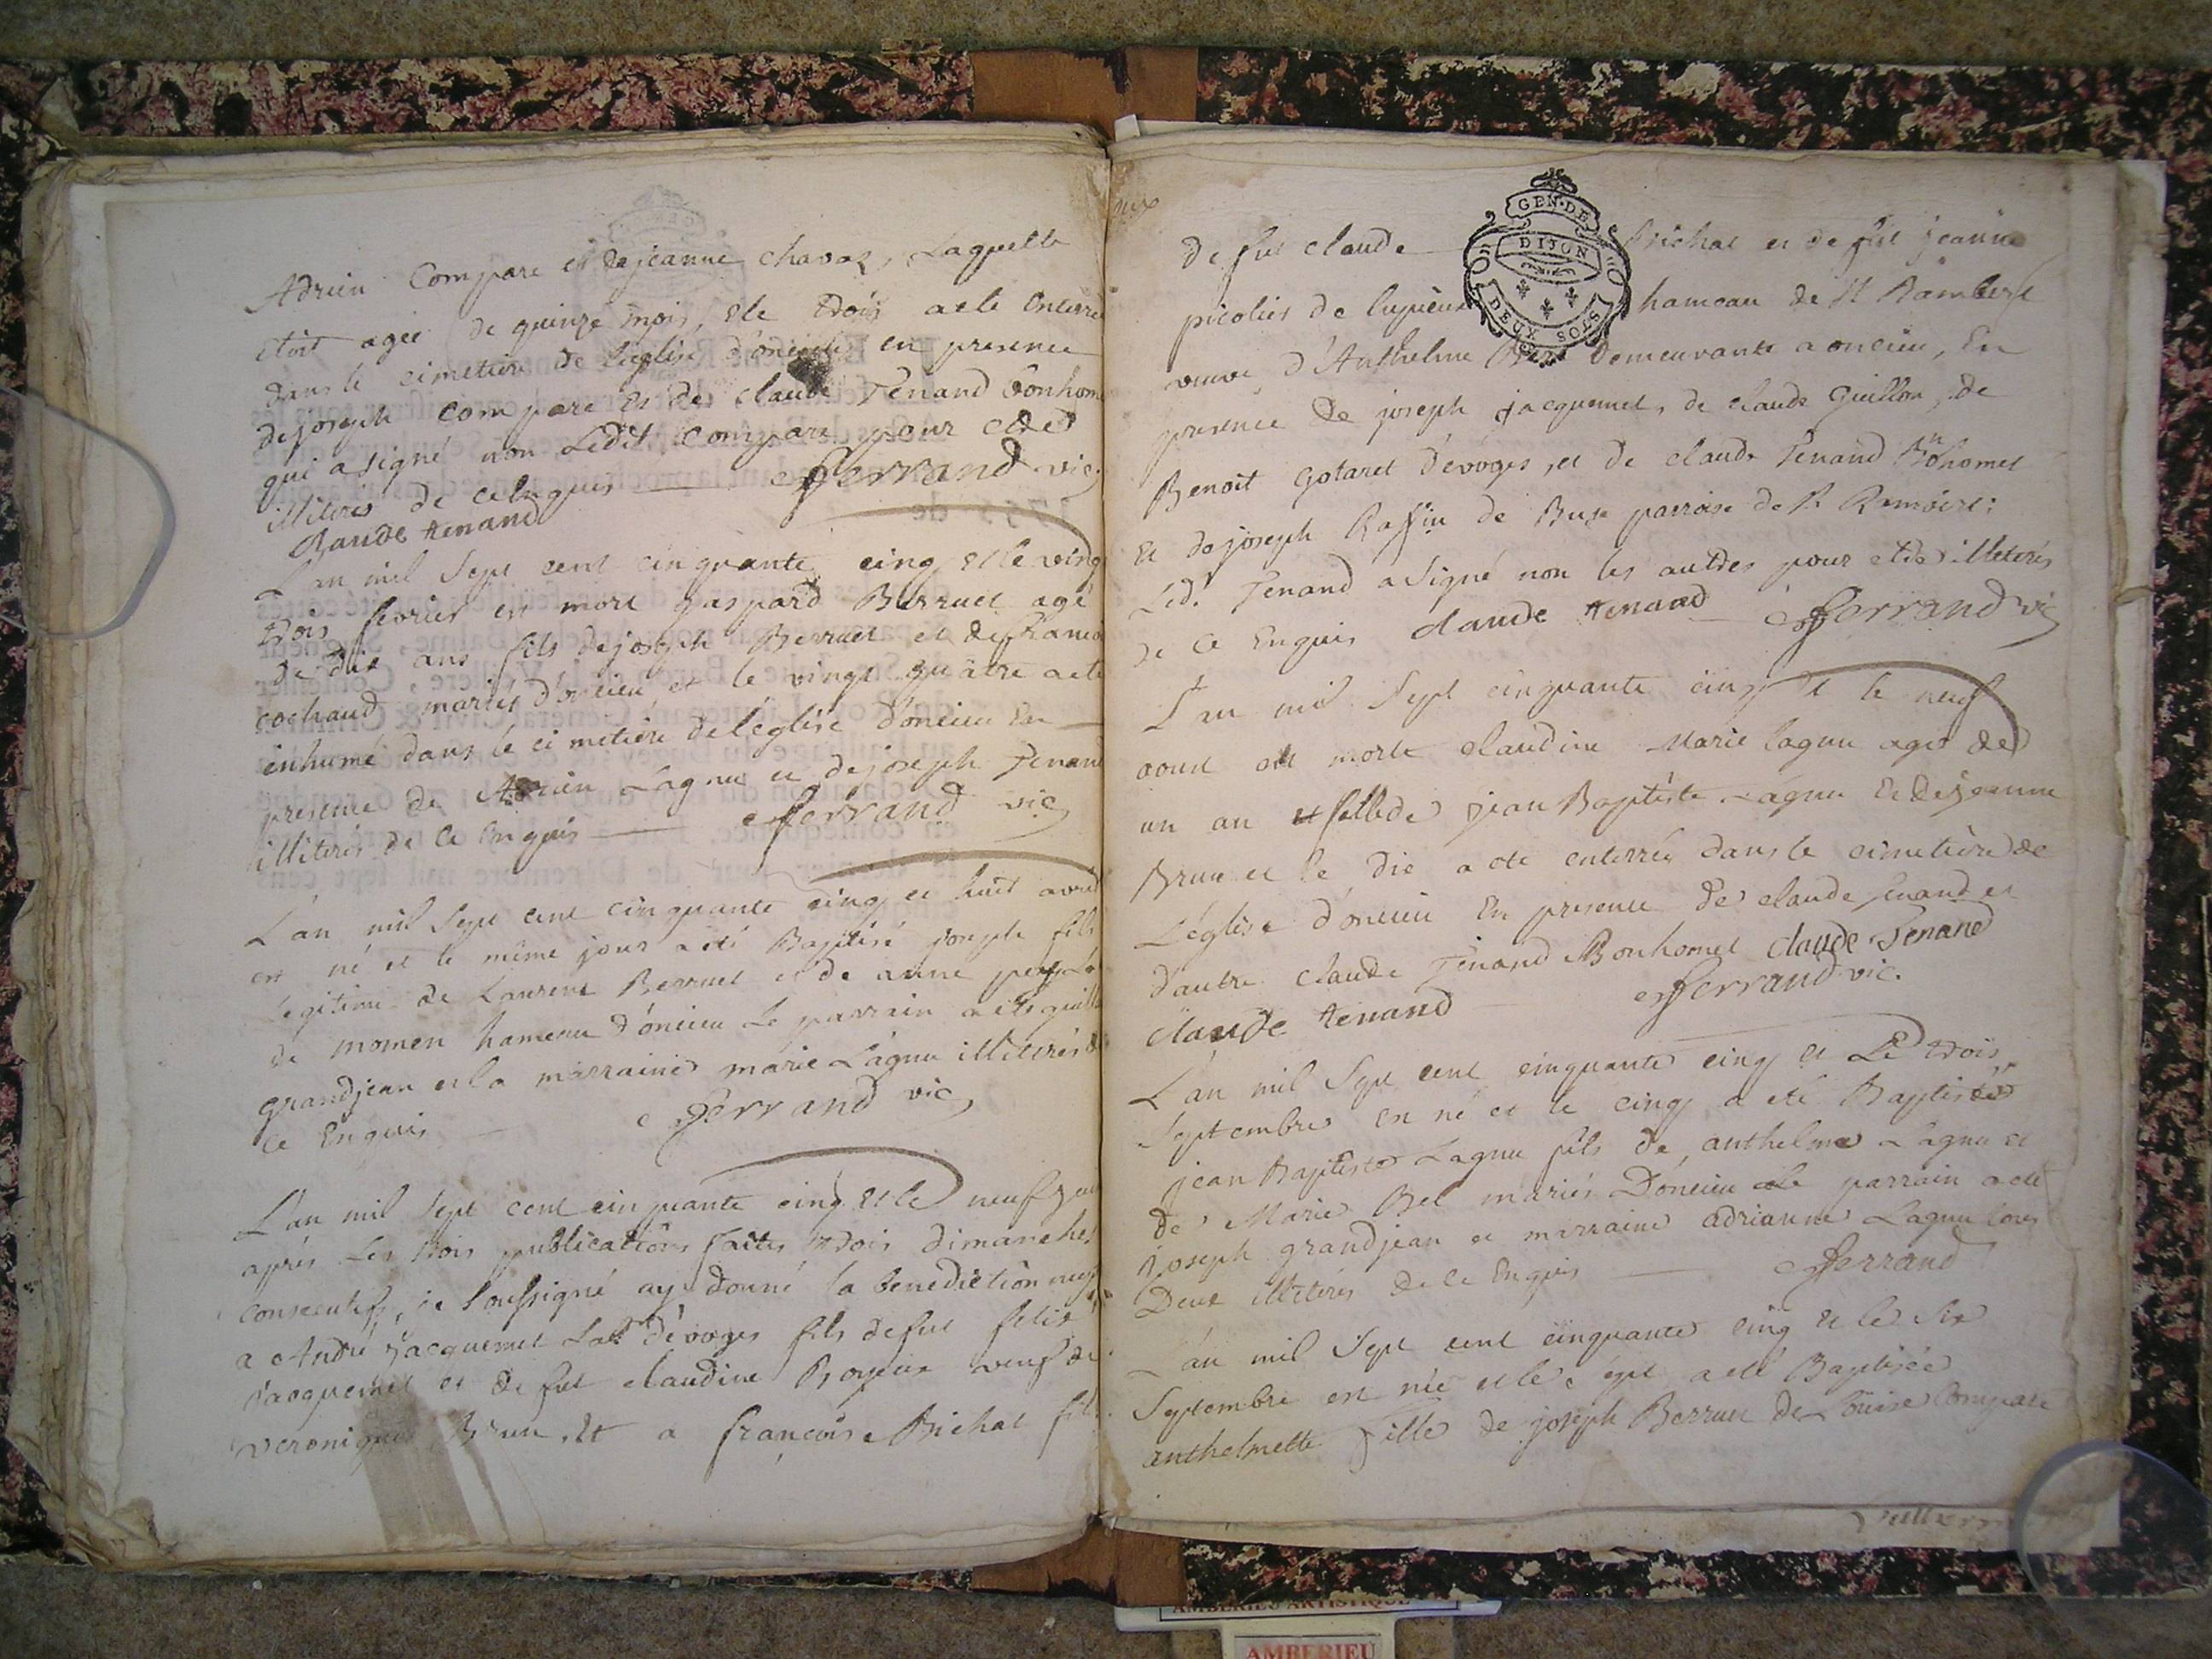 Adrien Compare et de jeanne chavaz, Laquelle
etoit agée de quinze mois, et le trois a ete enterré
dans le cimetiere de leglise d'oncieu en presence
de joseph compare et de claude Tenand bonhom
qui a signé non Ledit compare pour etre
illiteré de ce enquis ferrand vic
claude tenand
L'an mil sept cent cinquante cinq et le vingt
trois fevrier est mort gaspard Berruet agé
de dix ans fils de joseph Berruet et de franc
cochaud mariés d'oncieu et le vingt quatre a ete
inhumé dans le cimetiere de l'eglise d'oncieu En
presence de Adrien Lagnu et de joseph Tenand
illiterés de ce enquis ferrand vic
L'an mil sept cent cinquante cinq et huit avril
est né et le même jour a été Baptisé joseph fils
legitime de Laurent Berruet et de anne
de momen hameau d'oncieu Le parrain a ete
grandjean et la marraine marie Lagnu illiterés de
ce Enquis ferrand vic
L'an mil sept cent cinquante cinq et le neuf
aprés Les trois publications faites trois dimanches
consecutifs, je soussigné ay donné la benediction
a André jacquemet d'évoges fils de fut felix
jacquemet et de fut claudine Royeux veuf de
veronique Brun, et a françoise Bichat fille
GEN. DE
DIJON
DEUX SOLS
de fut claude Bichat et de fut jeanne
picolies de hameau de St Rambert
veuve d'Anthelme demeurante a oncieu, En
presence de joseph jacquemet, de claude Guillon, de
Benoit Gotaret d'évoges, et de claude Tenand Bonhomet
Et de joseph Raffin de Buge parroise de
Led. Tenand a signé non les autres pour etre illiterés
de ce Enquis claude tenand ferrand vic
L'an mil sept cinquante cinq et le neuf
aout est morte claudine Marie lagnu agée de
un an et fille de jean Baptiste Lagnu et de jeanne
Brun et le dix a ete enterrée dans le cimetière de
L'église d'oncieu En presence de claude Tenand et
d'autre claude Tenand Bonhomet claude Tenand
claude tenand ferrand vic.
L'an mil sept cent cinquante cinq et Le trois
septembre est né et le cinq a eté Baptisé
jean Baptiste Lagnu fils de anthelme Lagnu et
de Marie Bel mariés D'oncieu Le parrain a ete
joseph grandjean et marraine adrianne Lagnu tous
Deux illiterés de ce Enquis ferrand
L'an mil sept cent cinquante cinq et le six
septembre est née et le sept a eté Baptisée
anthelmette fille de joseph Berruet de Louise Compare
AMBERIEU ARTISTIQUE
AMBERIEU